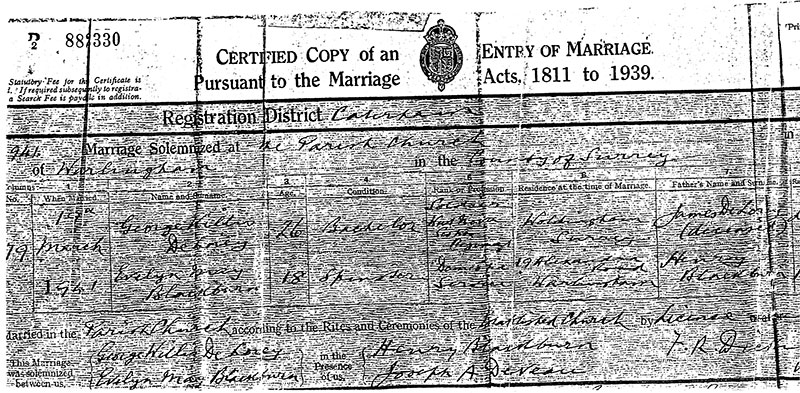 D 2 88,330
CERTIFIED COPY of an ENTRY OF MARRIAGE.
Pursuant to the Marriage Acts, 1811 to 1939.
Statutory Fee for the Certificate is
If required subsequently to registra-
a Search Fee is payable in addition.
Registration District Caterham
941. Marriage Solemnized at The Parish Church
of Warlingham in the County of Surrey
Columns 1 2 3 4 5 6 7
No. When Married. Name and Surname. Age. Condition. Rank or Profession Residence at the time of Marriage. Father's Name and Surname.
79 March 1941 George Willis De Lorey 26 Bachelor Woldingham Surrey James De Lorey (deceased)
Evelyn May Blackburn 18 Spinster Domestic Servant Road Warlingham Henry Blackburn
Married in the Parish Church according to the Rites and Ceremonies of the Established Church by License
This Marriage was solemnized between us, George Willis De Lorey in the Presence of us, Henry Blackburn
Evelyn May Blackburn Joseph A DeVeau